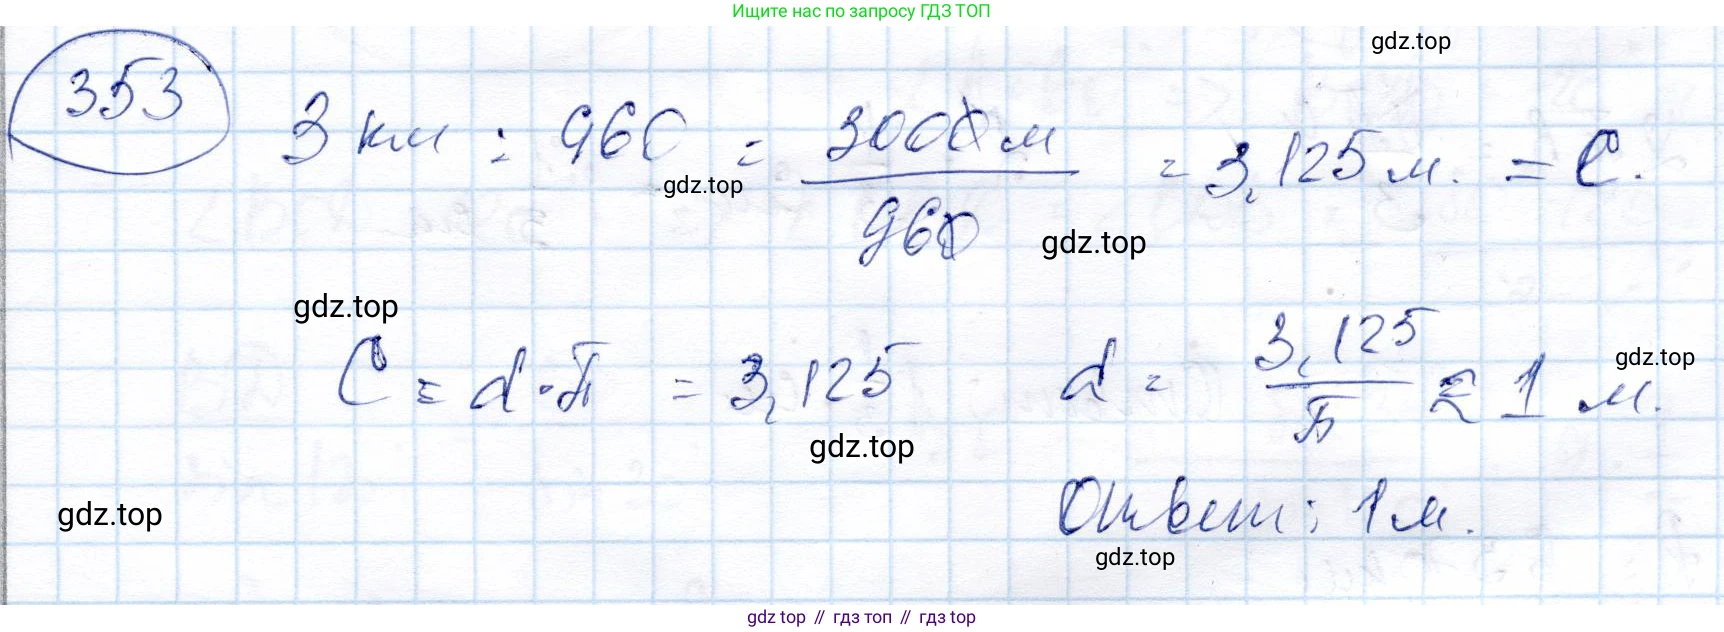 Ищите нас по запросу ГДЗ ТОП
gdz.top
353
3 км : 960 = 3000 м / 960 = 3,125 м. = C.
gdz.top
gdz.top
gdz.top
C = d · π = 3,125 d = 3,125 / π ≈ 1 м.
gdz.top
gdz.top
gdz.top
Ответ: 1 м.
gdz.top
gdz top // гдз топ // гдз top